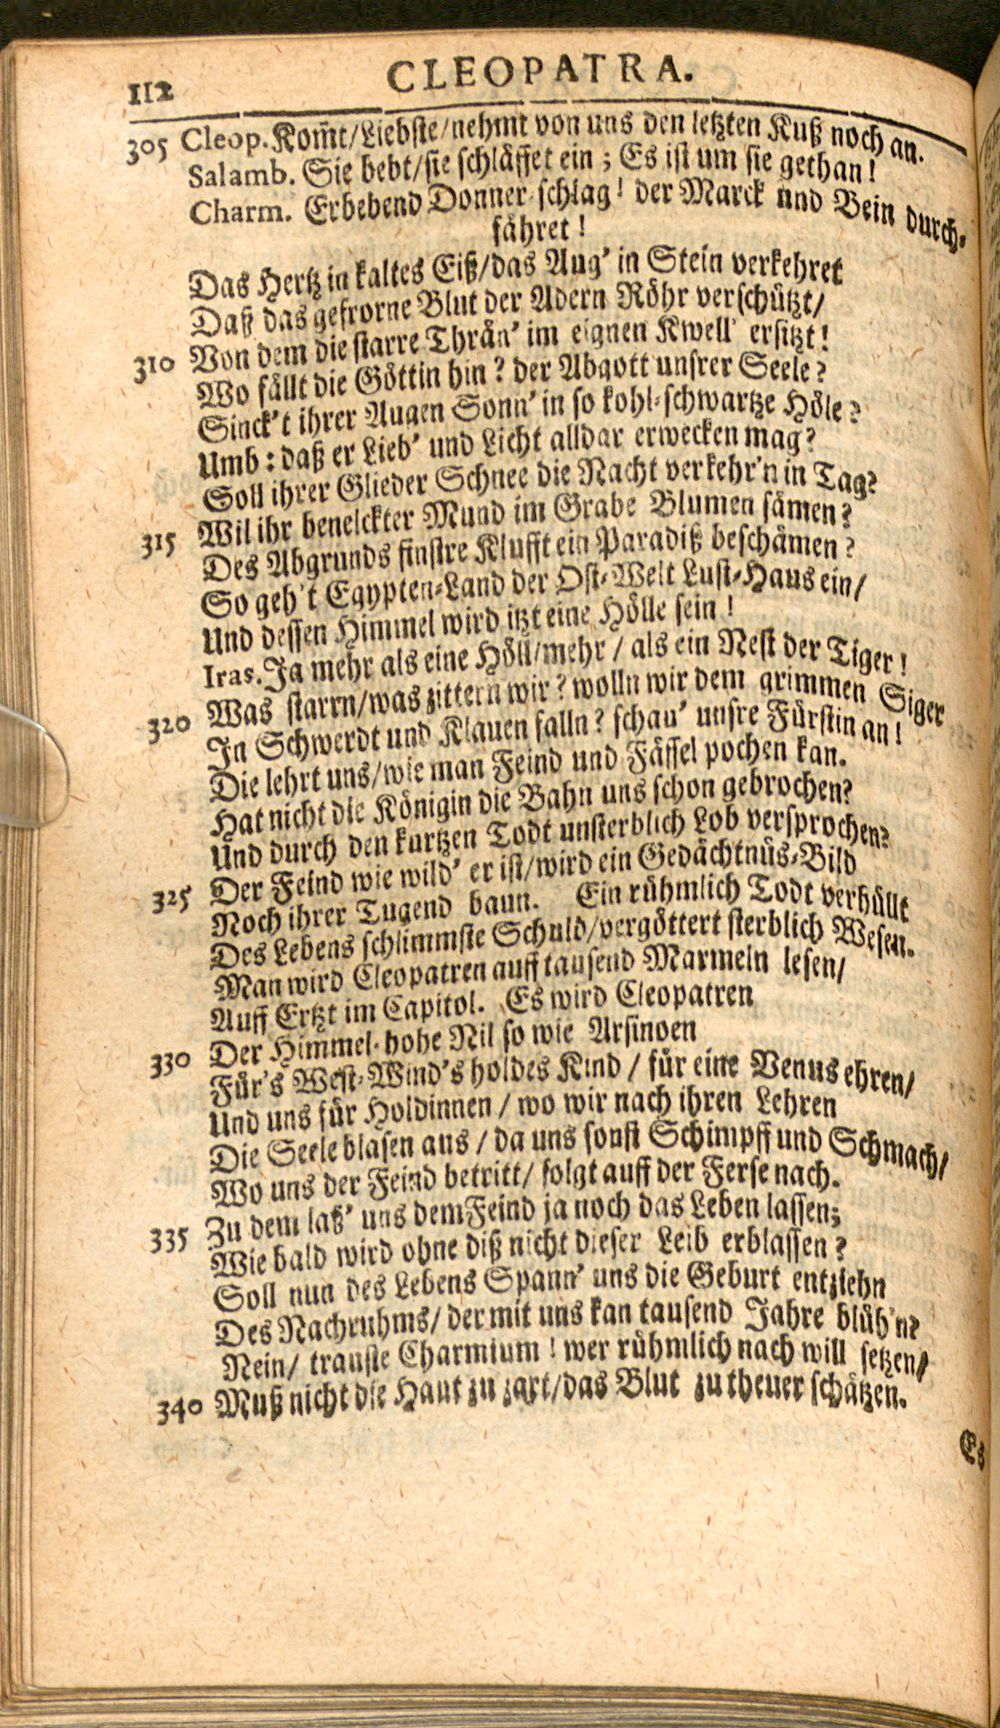 112 CLEOPATRA.
305 Cleop. Kom̃t/Liebste/nehmt von uns den letzten Kuß noch an.
Salamb. Sie bebt/sie schläffet ein; Es ist um sie gethan!
Charm. Erbebend Donner-schlag! der Marck und Bein durch-
fähret!
Das Hertz in kaltes Eiß/das Aug' in Stein verkehret
Daß das gefrorne Blut der Adern Röhr verschützt/
310 Von dem die starre Thrän' im eignen Kwell' ersitzt!
Wo fällt die Göttin hin? der Abgott unsrer Seele?
Sinck't ihrer Augen Sonn' in so kohl-schwartze Höle?
Umb: daß er Lieb' und Licht alldar erwecken mag?
Soll ihrer Glieder Schnee die Nacht verkehr'n in Tag?
315 Wil ihr benelckter Mund im Grabe Blumen sämen?
Des Abgrunds finstre Klufft ein Paradiß beschämen?
So geh't Egypten-Land der Ost-Welt Lust-Haus ein/
Und dessen Himmel wird itzt eine Hölle sein!
Iras. Ja mehr als eine Höll/mehr/als ein Nest der Tiger!
320 Was starrn/was zittern wir? wolln wir dem grimmen Siger
In Schwerdt und Klauen falln? schau' unsre Fürstin an!
Die lehrt uns/wie man Feind und Fässel pochen kan.
Hat nicht die Königin die Bahn uns schon gebrochen?
Und durch den kurtzen Todt unsterblich Lob versprochen?
325 Der Feind wie wild' er ist/wird ein Gedächtnüs-Bild
Noch ihrer Tugend baun. Ein rühmlich Todt verhüllt
Des Lebens schlimmste Schuld/vergöttert sterblich Wesen.
Man wird Cleopatren auff tausend Marmeln lesen/
Auff Ertzt im Capitol. Es wird Cleopatren
330 Der Himmel-hohe Nil so wie Arsinoen
Für's West-Wind's holdes Kind/für eine Venus ehren/
Und uns für Holdinnen/wo wir nach ihren Lehren
Die Seele blasen aus/da uns sonst Schimpff und Schmach/
Wo uns der Feind betritt/folgt auff der Ferse nach.
335 Zu dem laß' uns dem Feind ja noch das Leben lassen;
Wie bald wird ohne diß nicht dieser Leib erblassen?
Soll nun des Lebens Spann' uns die Geburt entziehn
Des Nachruhms/der mit uns kan tausend Jahre blüh'n?
Nein/trauste Charmium! wer rühmlich nach will setzen/
340 Muß nicht die Haut zu zart/das Blut zu theuer schätzen.
Es